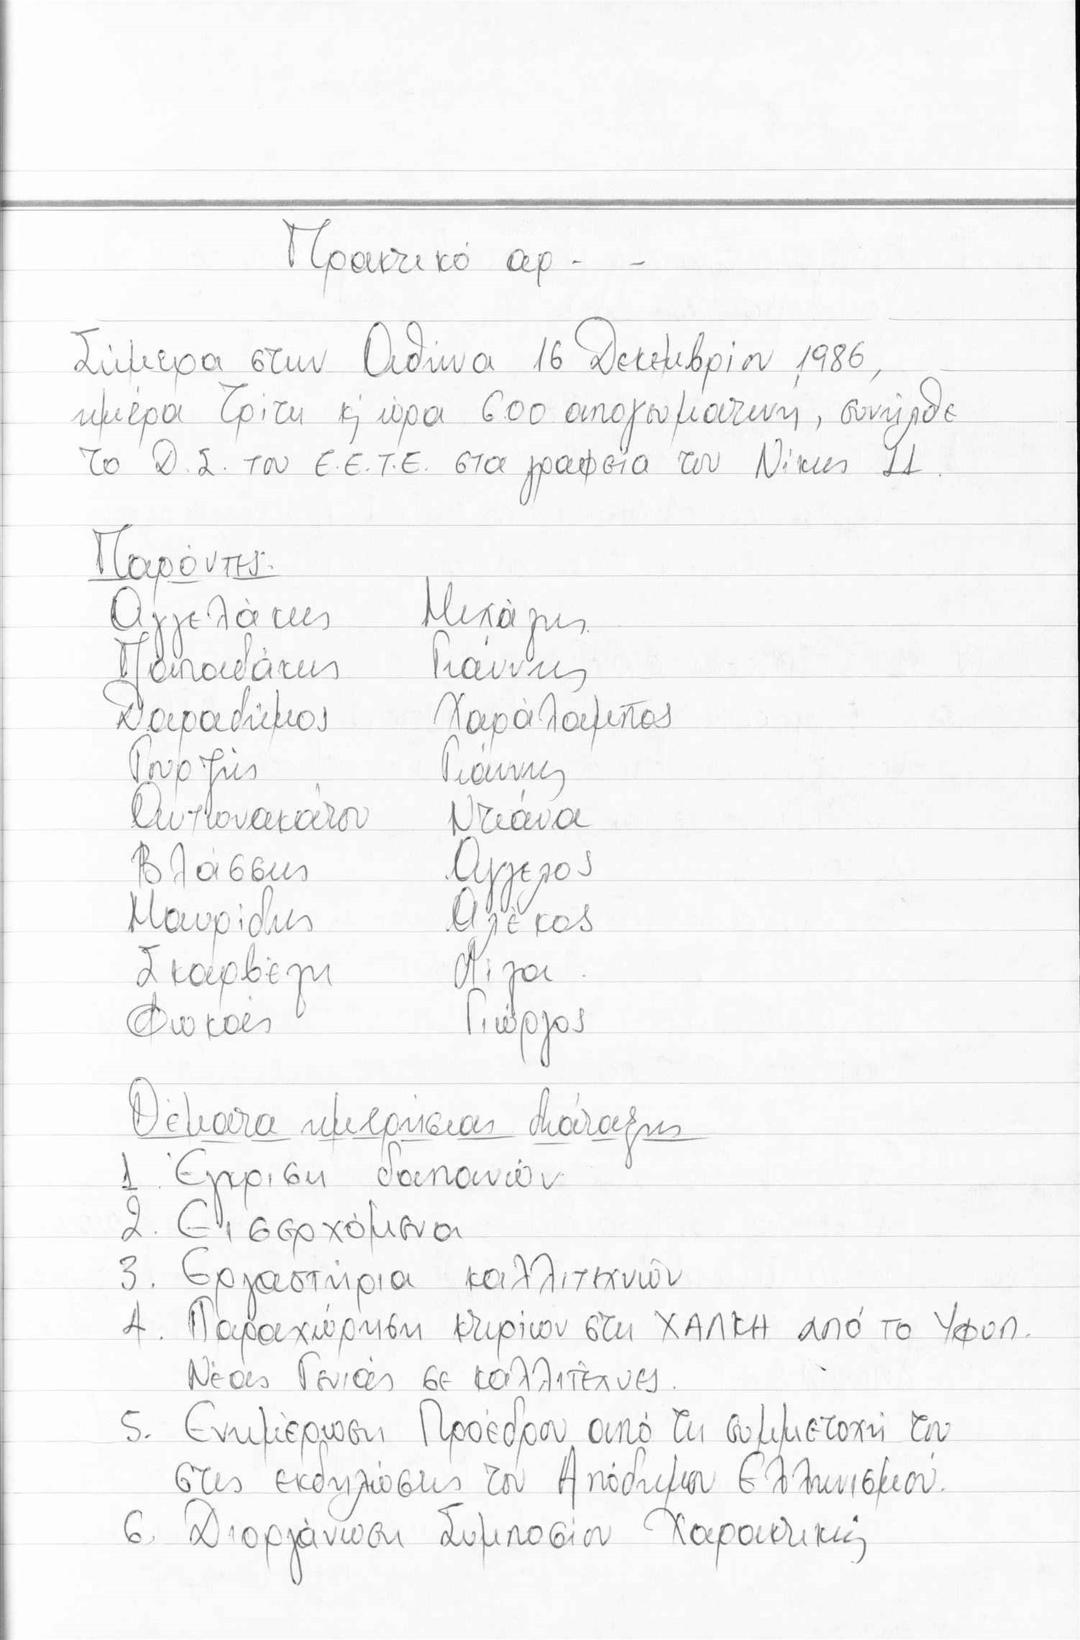 Πρακτικό αρ - -
Σήμερα στην Αθήνα 16 Δεκεμβρίου 1986,
ημέρα Τρίτη κ' ώρα 6.00 απογευματινή, συνήλθε
το Δ.Σ. του Ε.Ε.Τ.Ε. στα γραφεία του Νίκης 11.
Παρόντες:
Αγγελάκης Μιχάλης
Παπαδάκης Γιάννης
Δαραδήμος Χαράλαμπος
Γουρζής Γιάννης
Αντωνακάτου Ντιάνα
Βλάσσης Άγγελος
Μαυρίδης Αλέκος
Σκαρβέλη Λίζα
Φωκάς Γιώργος
Θέματα ημερήσιας διάταξης
1. Έγκριση δαπανών
2. Εισερχόμενα
3. Εργαστήρια καλλιτεχνών
4. Παραχώρηση κτιρίων στη ΧΑΛΚΗ από το Υφυπ.
Νέας Γενιάς σε καλλιτέχνες.
5. Ενημέρωση Προέδρου από τη συμμετοχή του
στις εκδηλώσεις του Απόδημου Ελληνισμού.
6. Διοργάνωση Συμποσίου Χαρακτικής